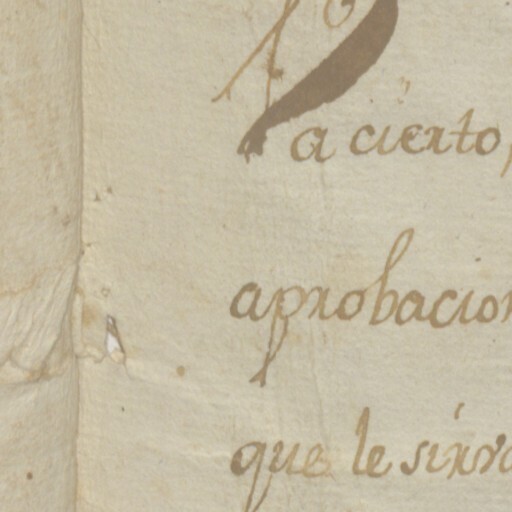 a cierto,
aprobacion
que le sirva